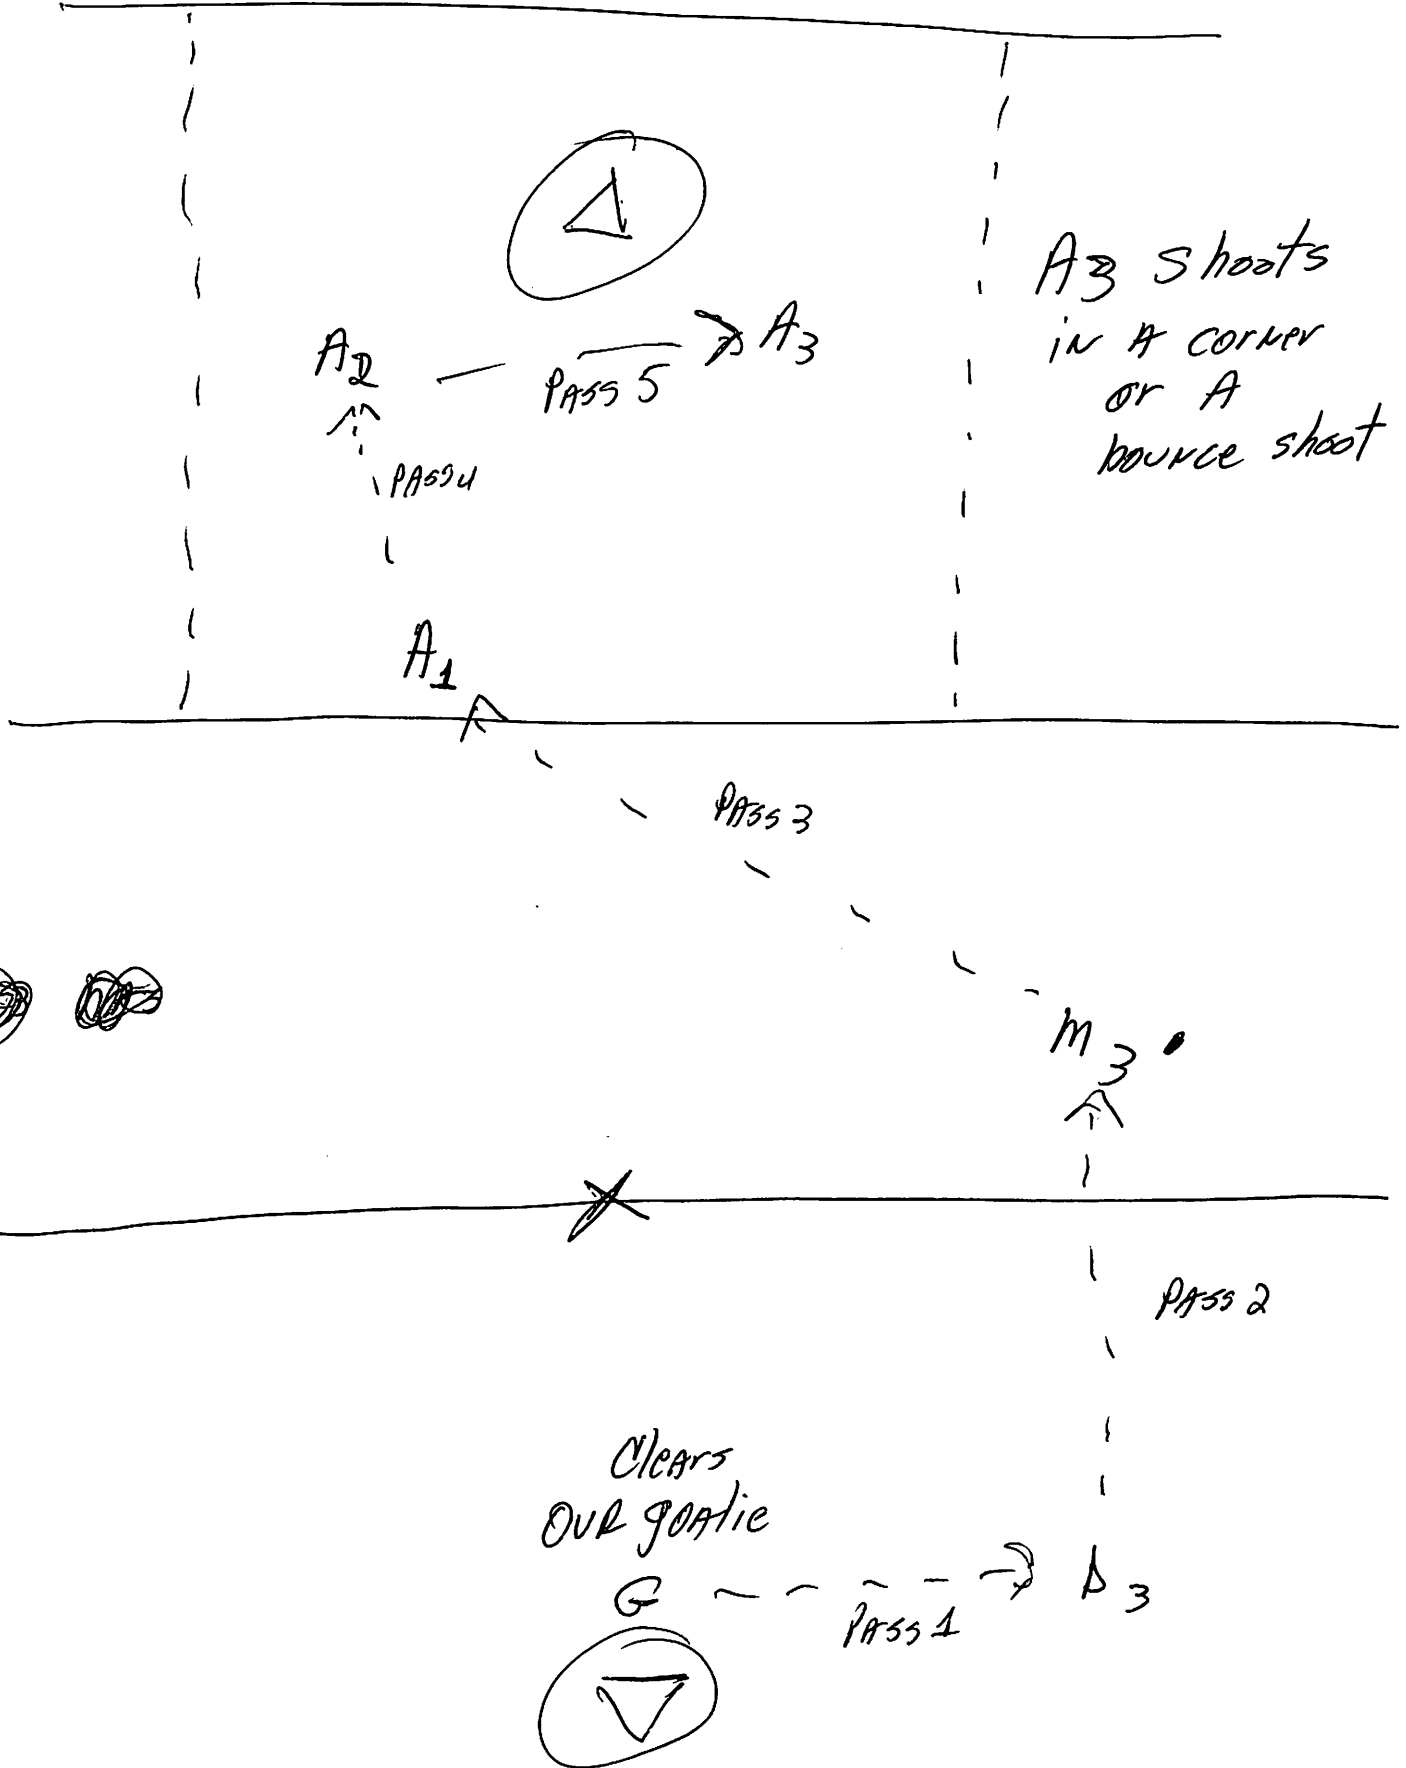 A3 shoots
in A corner
or A
bounce shoot
A2
A3
PASS 5
PASS 4
A1
PASS 3
M 3
PASS 2
Clears
OUR goalie
G
D 3
PASS 1